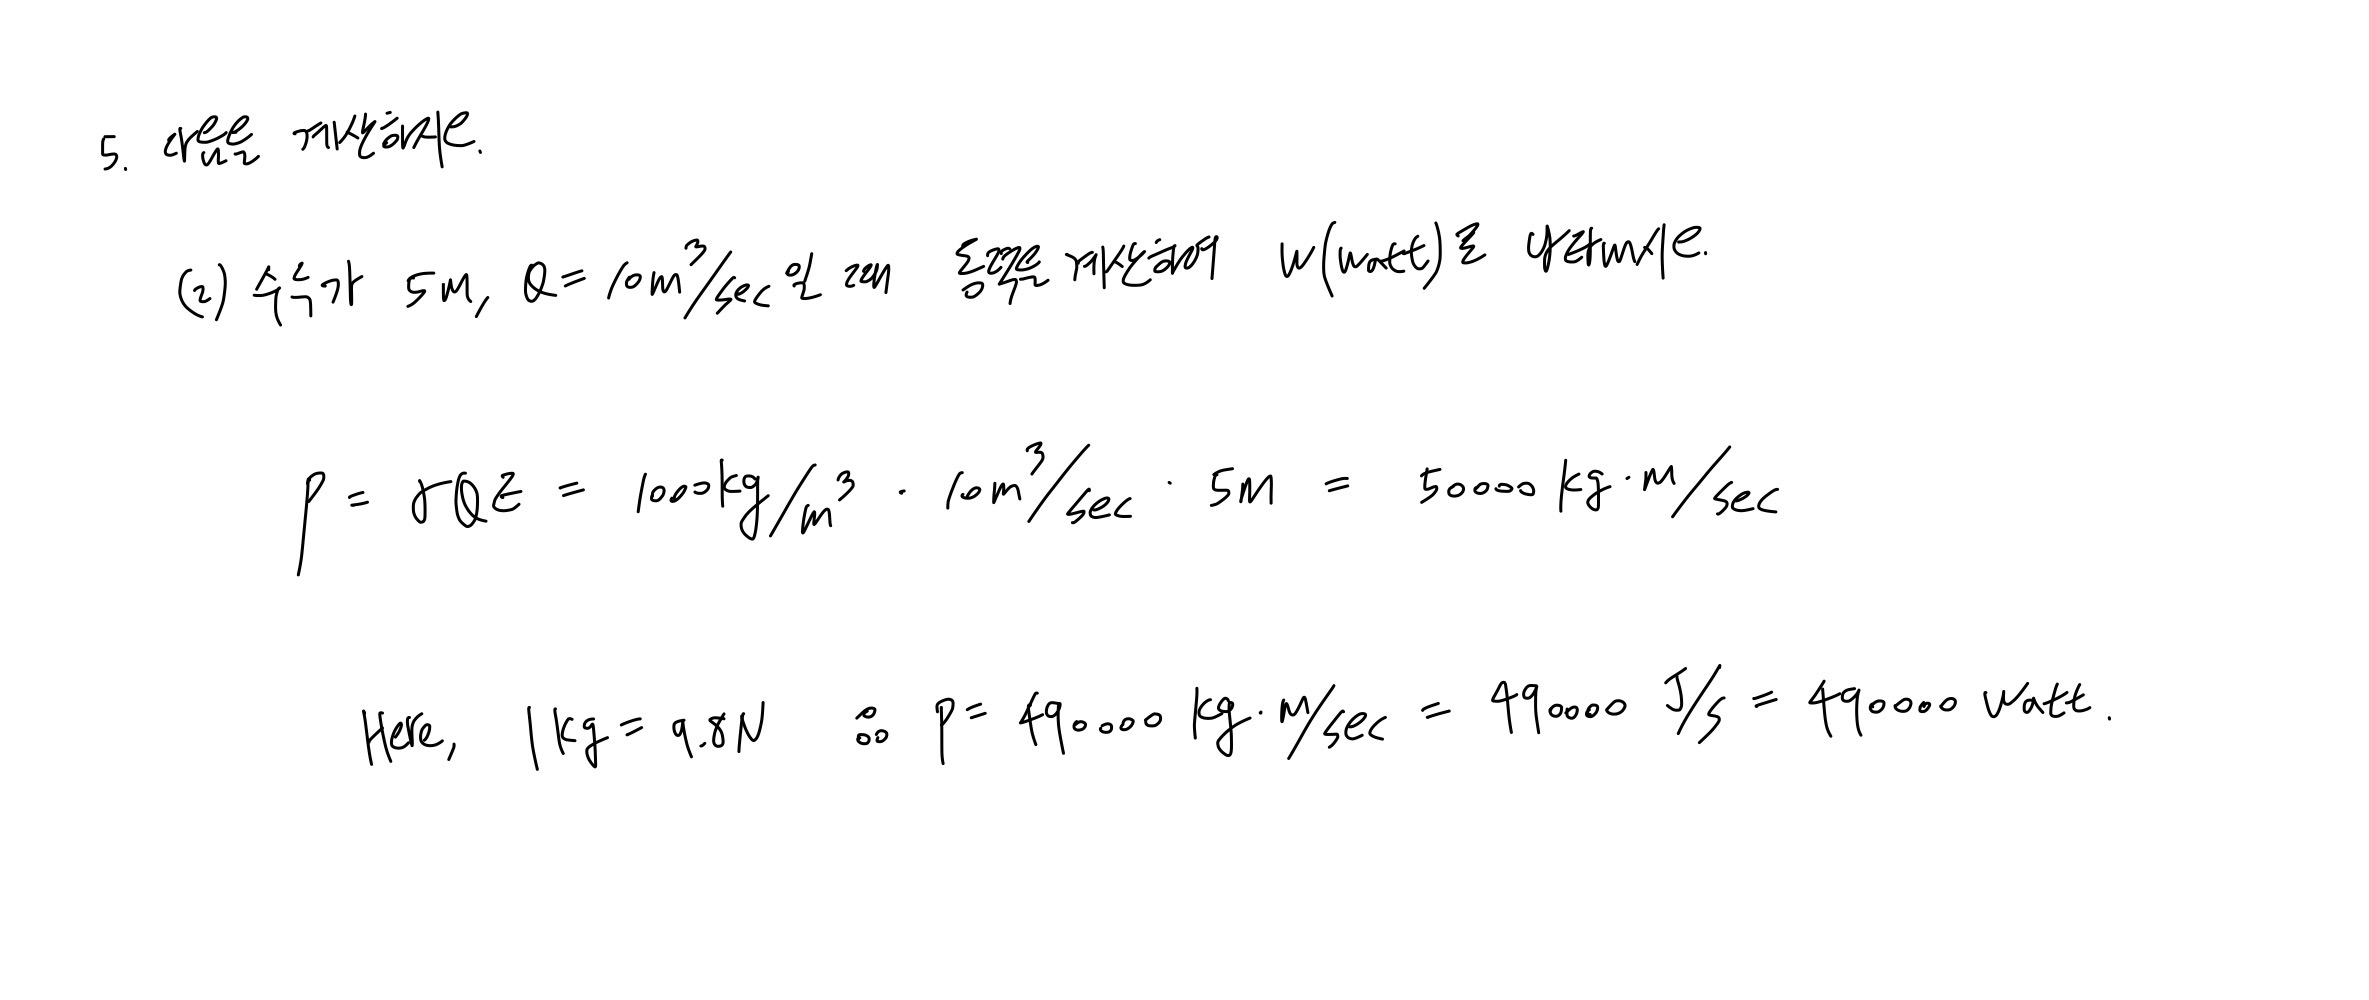 5. 다음을 계산하시오.
(2) 수두가 5m, Q = 10m³/sec일 때 동력을 계산하여 W(watt)로 나타내시오.
P = γQZ = 1000kg/m³ · 10m³/sec · 5m = 50000 kg·m/sec
Here, 1kg = 9.8N ∴ P = 490000 kg·m/sec = 490000 J/s = 490000 watt.